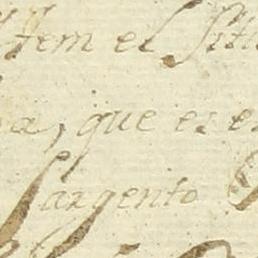 Item el Siti
a, que es e
Sargento